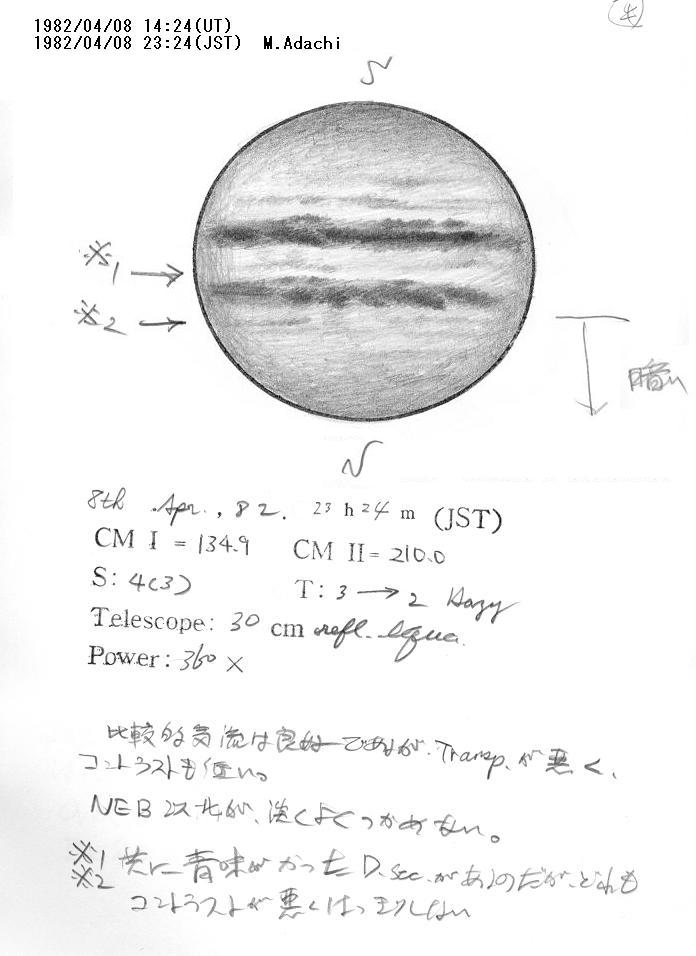 1982/04/08 14:24(UT)
1982/04/08 23:24(JST) M.Adachi
S
※1 →
※2 →
暗い
N
8th Apr., 82. 23 h 24 m (JST)
CM I = 134.9 CM II = 210.0
S: 4(3) T: 3 → 2 Hazy
Telescope: 30 cm refl. Equa.
Power: 360 ×
比較的気流は良好であるが、Transp.が悪く、
コントラストも低い。
NEB 以北が、淡くよくつかめない。
※1 共に青味がかった D. sec. があるのだが、どれも
※2 コントラストが悪くはっきりしない